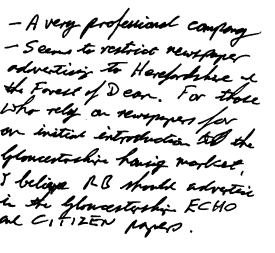 - A very professional company
- Seems to restrict newspaper
advertising to Herefordshire &
the Forest of Dean. For those
who rely on newspapers for
an initial introduction to the
Gloucestershire housing market,
I believe RB should advertise
in the Gloucestershire ECHO
and CITIZEN papers.